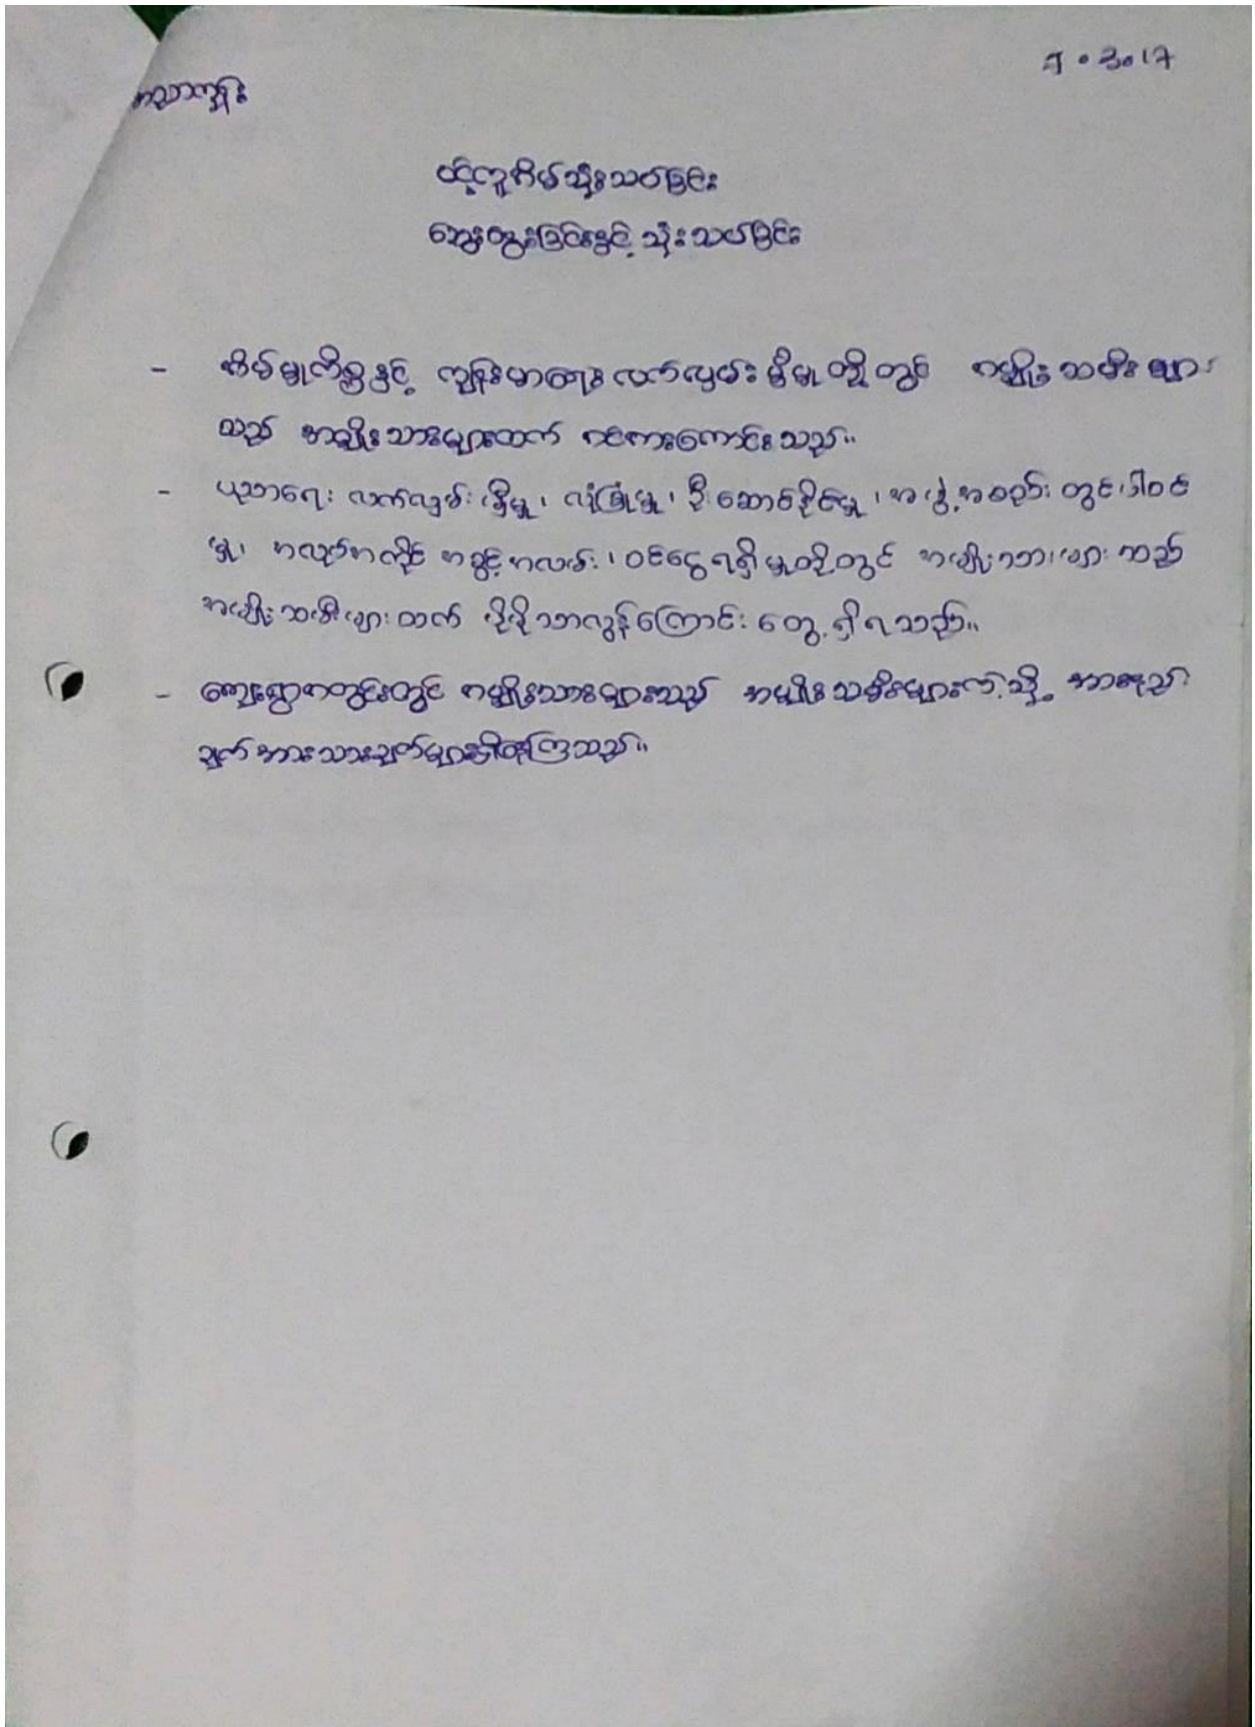 အညာကုန်း
ပင့်ကူအိမ်သုံးသပ်ခြင်း
ဆွေးနွေးခြင်းနှင့် သုံးသပ်ခြင်း
- အိမ်မှုကိစ္စနှင့် ကျန်းမာရေး လက်လှမ်း မှီမှု တို့တွင် အမျိုးသမီးများ
သည် အမျိုးသားများထက် ပင်ကားကောင်းသည်။
- ပညာရေး လက်လှမ်း မှီမှု၊ လုံခြုံမှု၊ ဦးဆောင်နိုင်မှု၊ အဖွဲ့အစည်း တွင်ပါဝင်
မှု၊ အလုပ်အကိုင် အခွင့်အလမ်း၊ ဝင်ငွေရရှိမှုတို့တွင် အမျိုးသားများသည်
အမျိုးသမီးများထက် ပိုမိုသာလွန်ကြောင်း တွေ့ရှိရသည်။
- ကျေးရွာအတွင်းတွင် အမျိုးသားများသည် အမျိုးသမီးများကဲ့သို့ အားနည်း
ချက် အားသာချက်များရှိကြသည်။